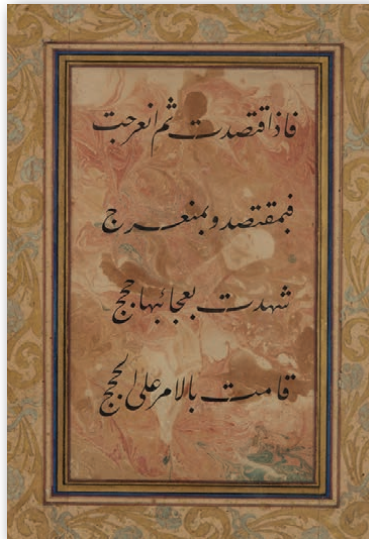 فاذا اقتصدت ثم انعرجت
فبمقتصد وبمنعرج
شهدت بعجائبها حجج
قامت بالامر على الحجج